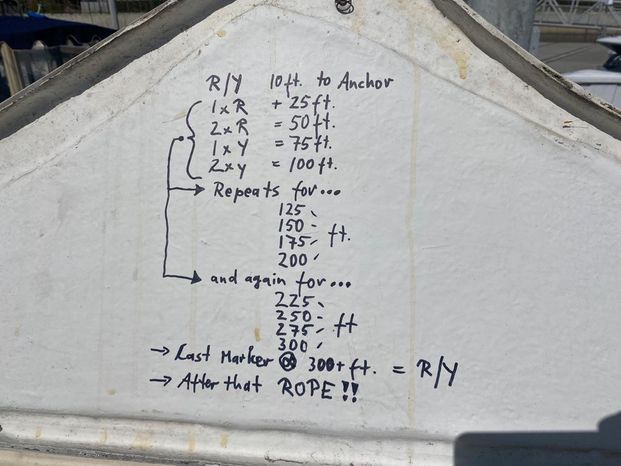 R/Y 10ft. to Anchor
1xR + 25ft.
2xR = 50ft.
1xY = 75ft.
2xy = 100ft.
Repeats for...
125
150
175 ft.
200
and again for...
225
250
275 ft
300
→ Last Marker @ 300+ft. = R/Y
→ After that ROPE!!